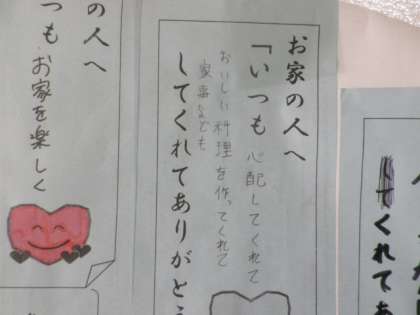 お家の人へ
「いつも 心配してくれて
おいしい料理を作ってくれて
家事なども
してくれてありがとう
の人へ
つも お家を楽しく
してくれてあ